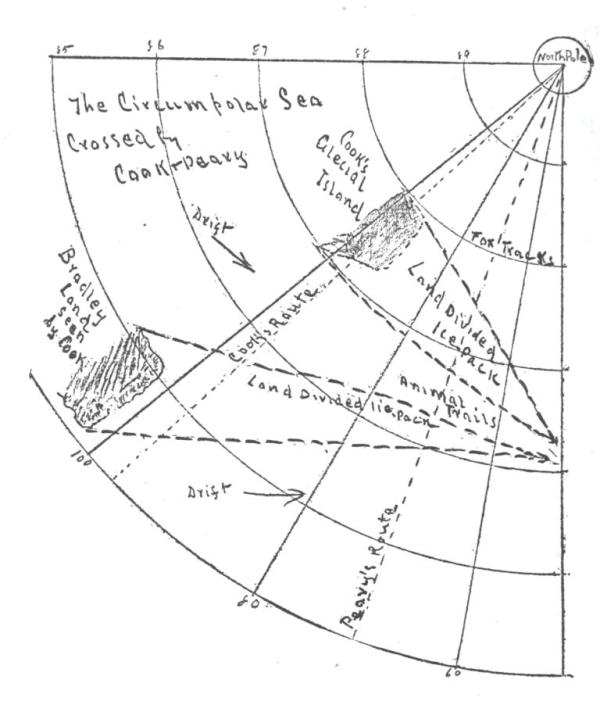 85 86 87 88 89
North Pole
The Circumpolar Sea
Crossed by
Cook + Peary
Cook's
Glecial
Island
Drift
Fox Tracks
Bradley
Land
seen
by Cook
Cook's Route
Land Divided
Ice pack
Land Divided Iie pack
Animal
Trails
100
Drift
Peary's Route
80
60